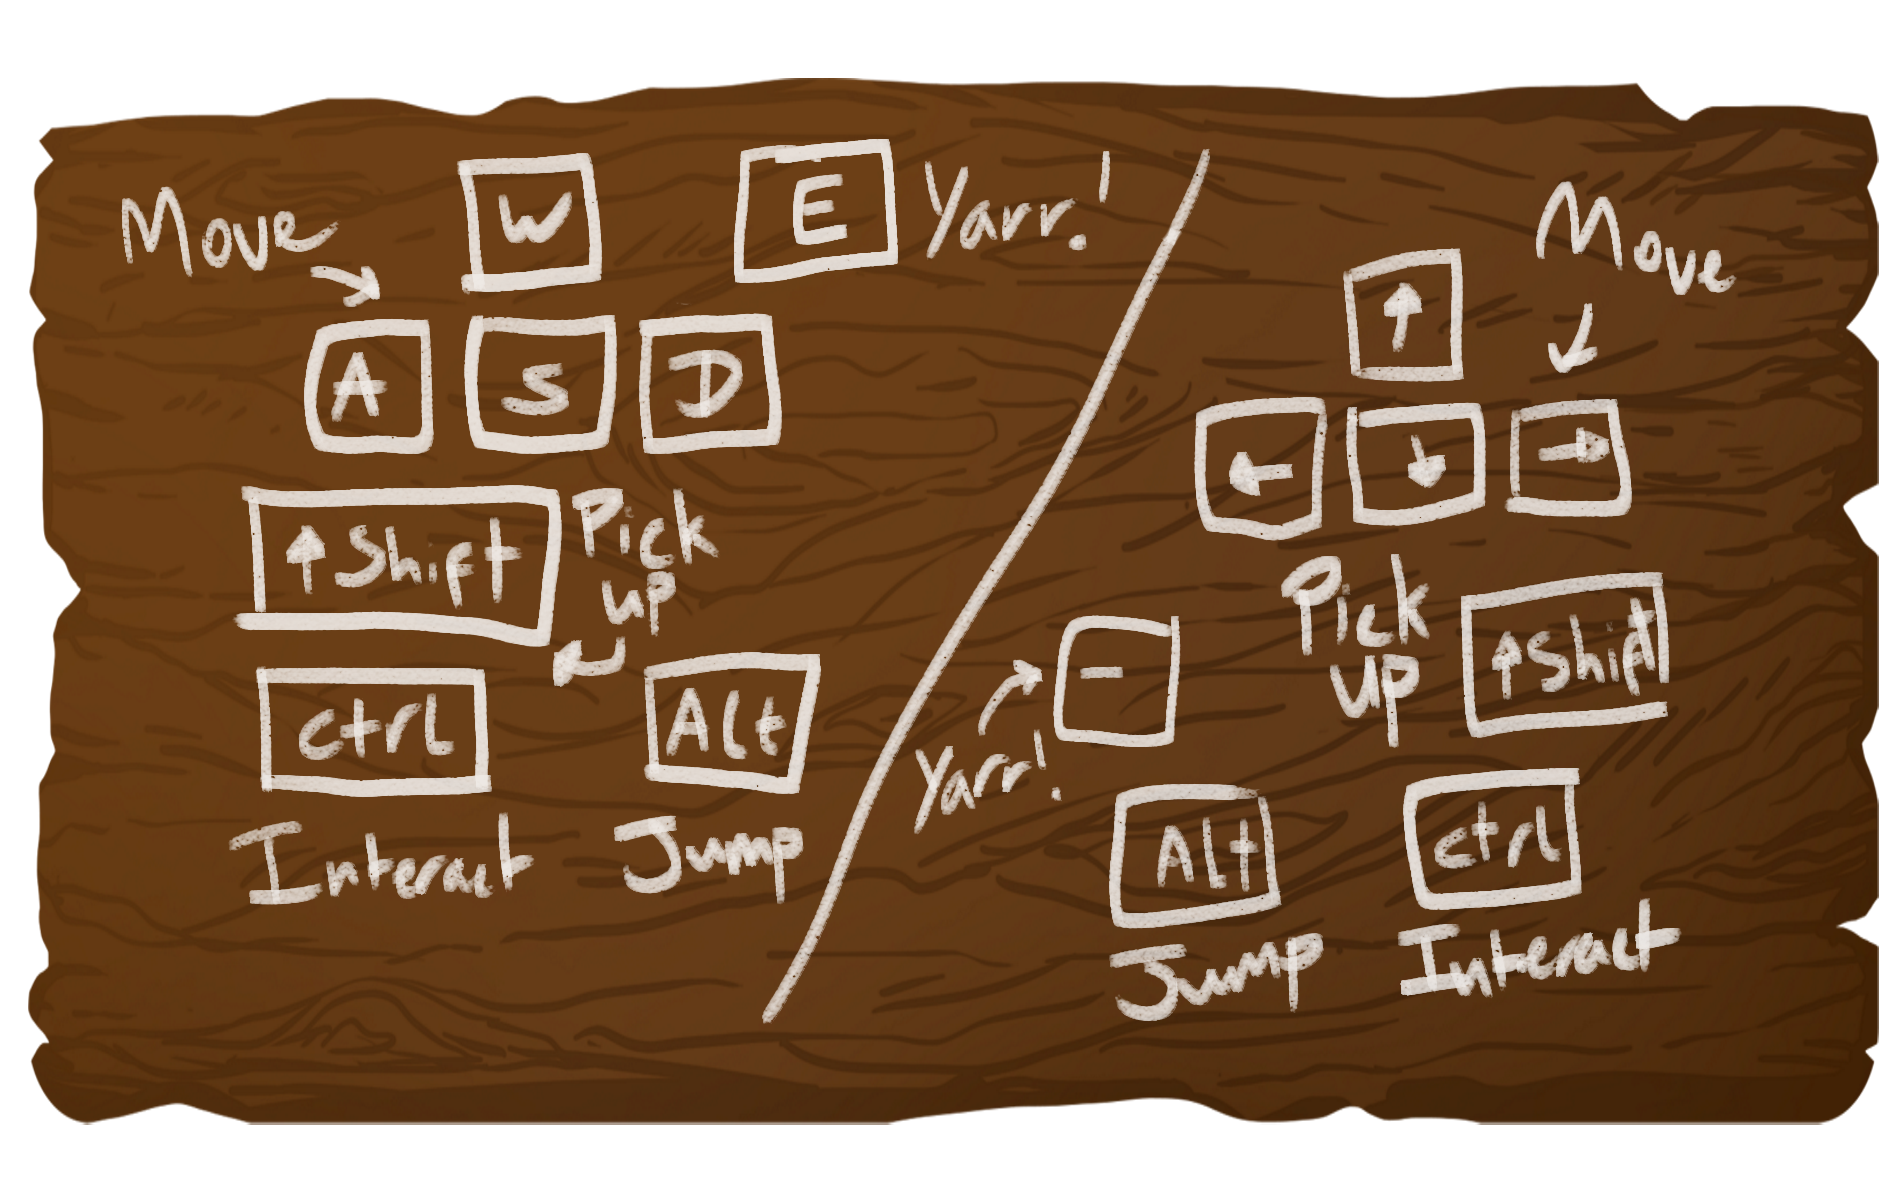 Move
W
E Yarr!
A S D
↑ Shift Pick
up
Ctrl Alt
Interact Jump
Move
↑
← ↓ →
Pick
up
↑ Shift
-
Yarr!
Alt Ctrl
Jump Interact